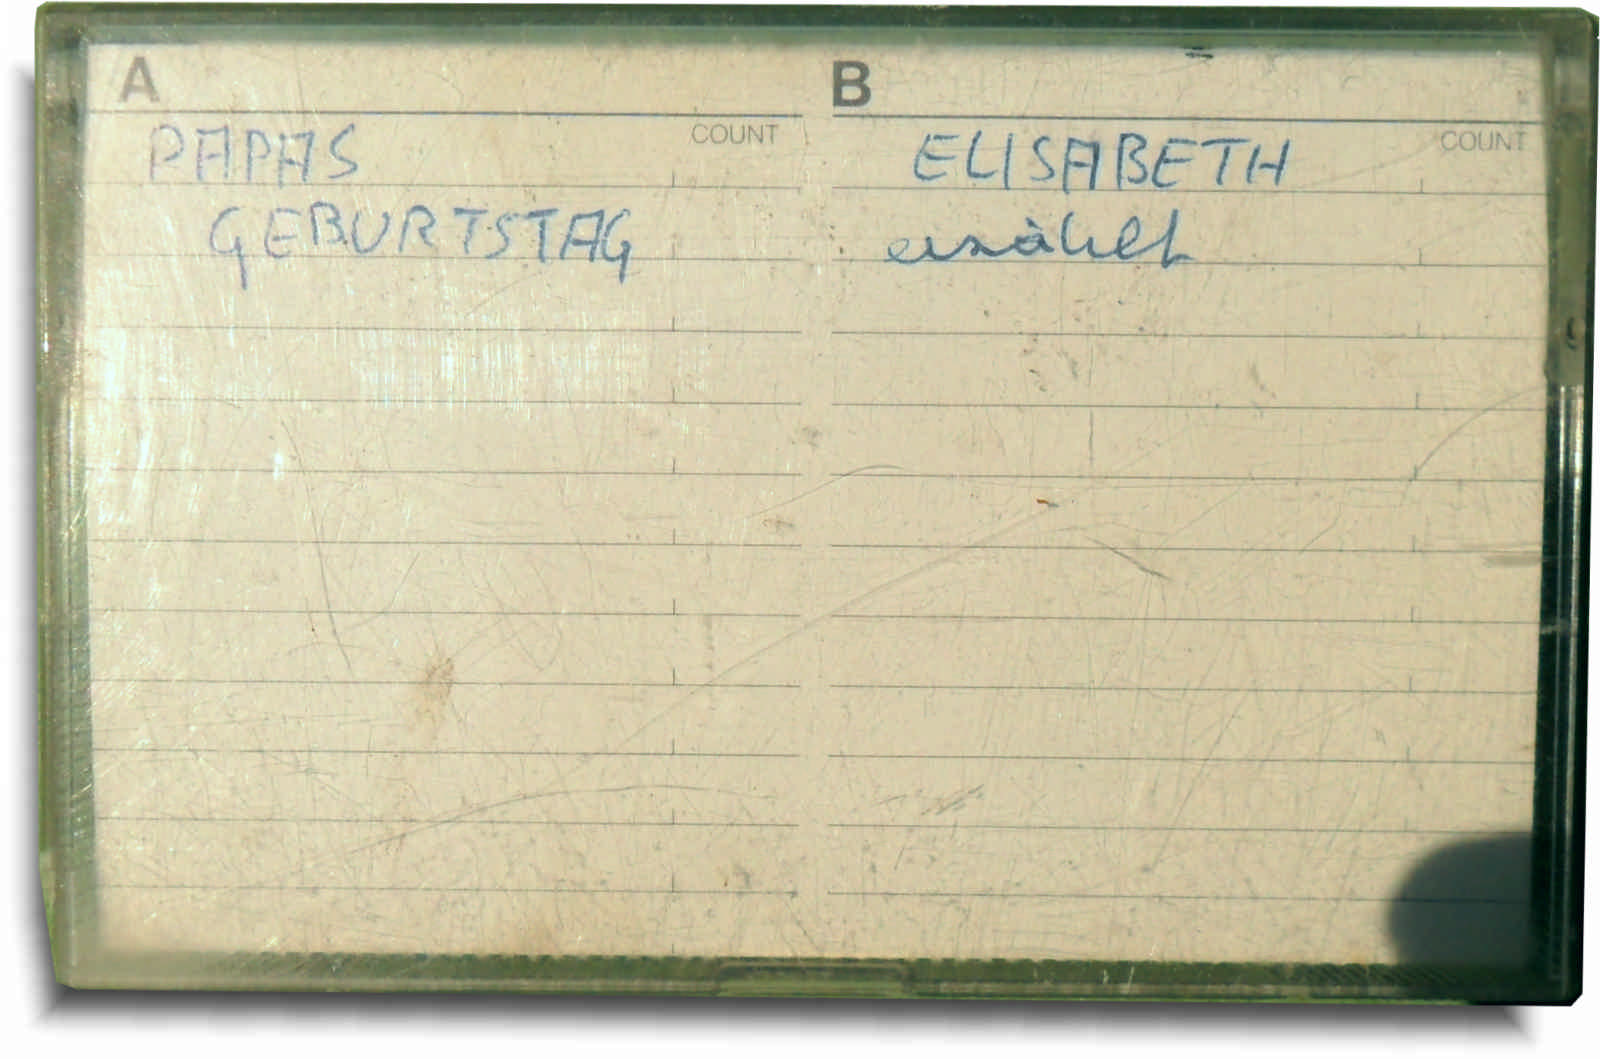 A
COUNT
PAPAS
GEBURTSTAG
B
COUNT
ELISABETH
erzählt